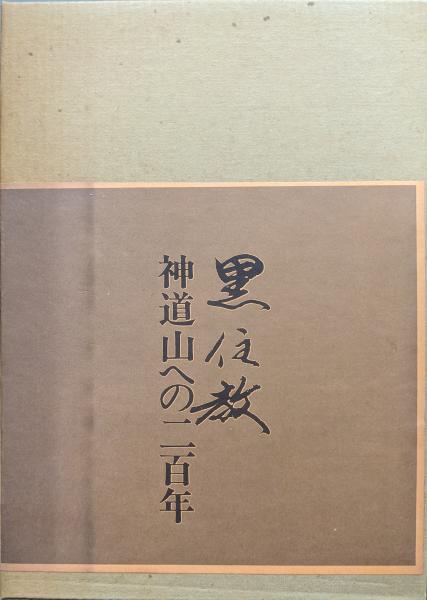 黒住教
神道山への二百年